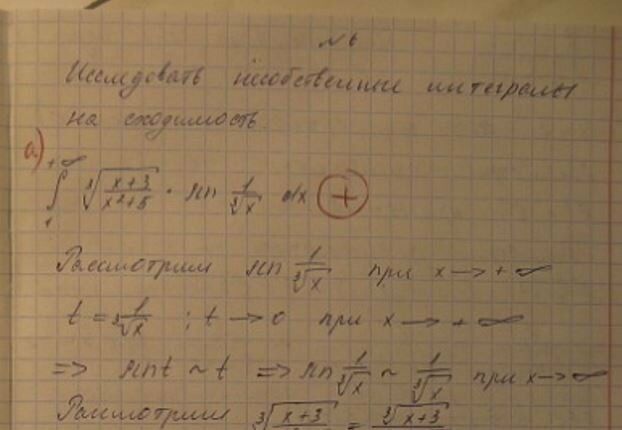 № 6
Исследовать несобственные интегралы
на сходимость
а) ∫₁^{+∞} ∛((x+3)/(x²+5)) · sin 1/∛x dx (+)
Рассмотрим sin 1/∛x при x → +∞
t = 1/∛x ; t → 0 при x → +∞
=> sin t ~ t => sin 1/∛x ~ 1/∛x при x → ∞
Рассмотрим ∛(x+3) = ∛(x+3)